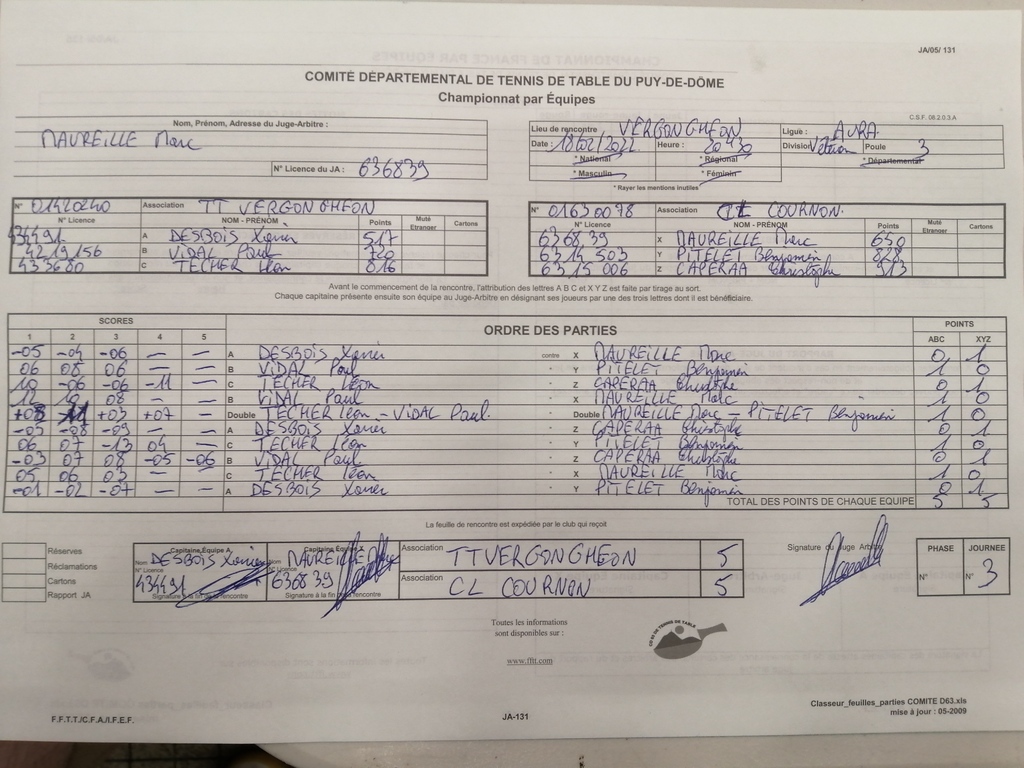 JA/05/ 131
COMITÉ DÉPARTEMENTAL DE TENNIS DE TABLE DU PUY-DE-DÔME
Championnat par Équipes
C.S.F. 08.2.0.3.A
Nom, Prénom, Adresse du Juge-Arbitre :
MAUREILLE Marc
N° Licence du JA : 636839
Lieu de rencontre VERGONGHEON Ligue : AURA
Date : 18/02/2022 Heure : 20H30 Division Vétéran Poule 3
* National * Régional * Départemental
* Masculin * Féminin
* Rayer les mentions inutiles
N° 01420240 Association TT VERGONGHEON
N° Licence NOM - PRÉNOM Points Muté Etranger Cartons
434491 A DESBOIS Xavier 517
4219156 B VIDAL Paul 720
433680 C TECHER Léon 816
N° 01630078 Association CL COURNON.
N° Licence NOM - PRÉNOM Points Muté Etranger Cartons
636839 X MAUREILLE Marc 650
6314503 Y PITELET Benjamin 828
6315006 Z CAPERAA Christophe 913
Avant le commencement de la rencontre, l'attribution des lettres A B C et X Y Z est faite par tirage au sort.
Chaque capitaine présente ensuite son équipe au Juge-Arbitre en désignant ses joueurs par une des trois lettres dont il est bénéficiaire.
SCORES ORDRE DES PARTIES POINTS
1 2 3 4 5 ABC XYZ
-05 -04 -06 — — A DESBOIS Xavier contre X MAUREILLE Marc 0 1
06 08 06 — — B VIDAL Paul " Y PITELET Benjamin 1 0
10 -06 -06 -11 — C TECHER Léon " Z CAPERAA Christophe 0 1
12 10 08 — — B VIDAL Paul " X MAUREILLE Marc 1 0
+08 -11 +03 +07 — Double TECHER Léon - VIDAL Paul. " Double MAUREILLE Marc - PITELET Benjamin 1 0
-03 -08 -09 — — A DESBOIS Xavier " Z CAPERAA Christophe 0 1
06 07 -13 04 — C TECHER Léon " Y PITELET Benjamin 1 0
-03 07 08 -05 -06 B VIDAL Paul " Z CAPERAA Christophe 0 1
05 06 03 — — C TECHER Léon " X MAUREILLE Marc 1 0
-01 -02 -07 — — A DESBOIS Xavier " Y PITELET Benjamin 0 1
TOTAL DES POINTS DE CHAQUE EQUIPE 5 5
La feuille de rencontre est expédiée par le club qui reçoit
Réserves
Réclamations
Cartons
Rapport JA
Capitaine Équipe A
Nom DESBOIS Xavier
N° Licence
434491
Signature à la fin de la rencontre
Capitaine Équipe X
Nom MAUREILLE
N° Licence
636839
Signature à la fin de la rencontre
Association TT VERGONGHEON 5
Association CL COURNON 5
Signature du Juge Arbitre
PHASE JOURNEE
N° N° 3
Toutes les informations
sont disponibles sur :
www.fftt.com
CD 63 DE TENNIS DE TABLE
F.F.T.T./C.F.A./I.F.E.F.
JA-131
Classeur_feuilles_parties COMITE D63.xls
mise à jour : 05-2009